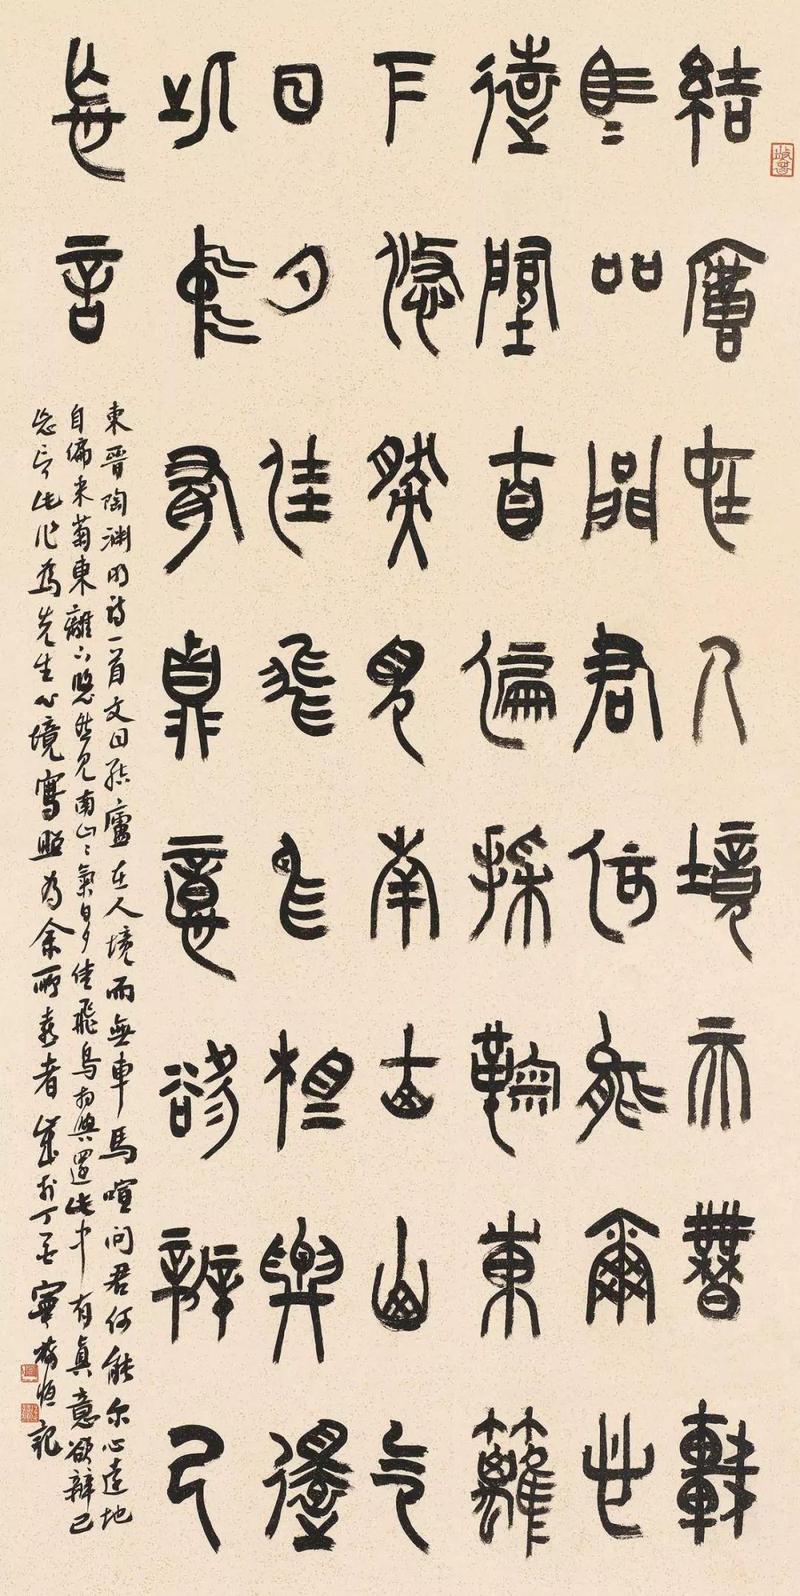 結廬在人境而無車
馬吅問君何能爾心
遠地自偏採菊東籬
下悠然見南山山气
日夕佳飛鳥相與還
此中有真意欲辨已
忘言
東晋陶渊明詩一首文曰結廬在人境而無車馬喧問君何能尔心遠地
自偏采菊東籬下悠然見南山〻氣日夕佳飛鳥相與還此中有真意欲辨已
忘言此作為先生心境寫照為余所喜者歲於丁亥寧恒記